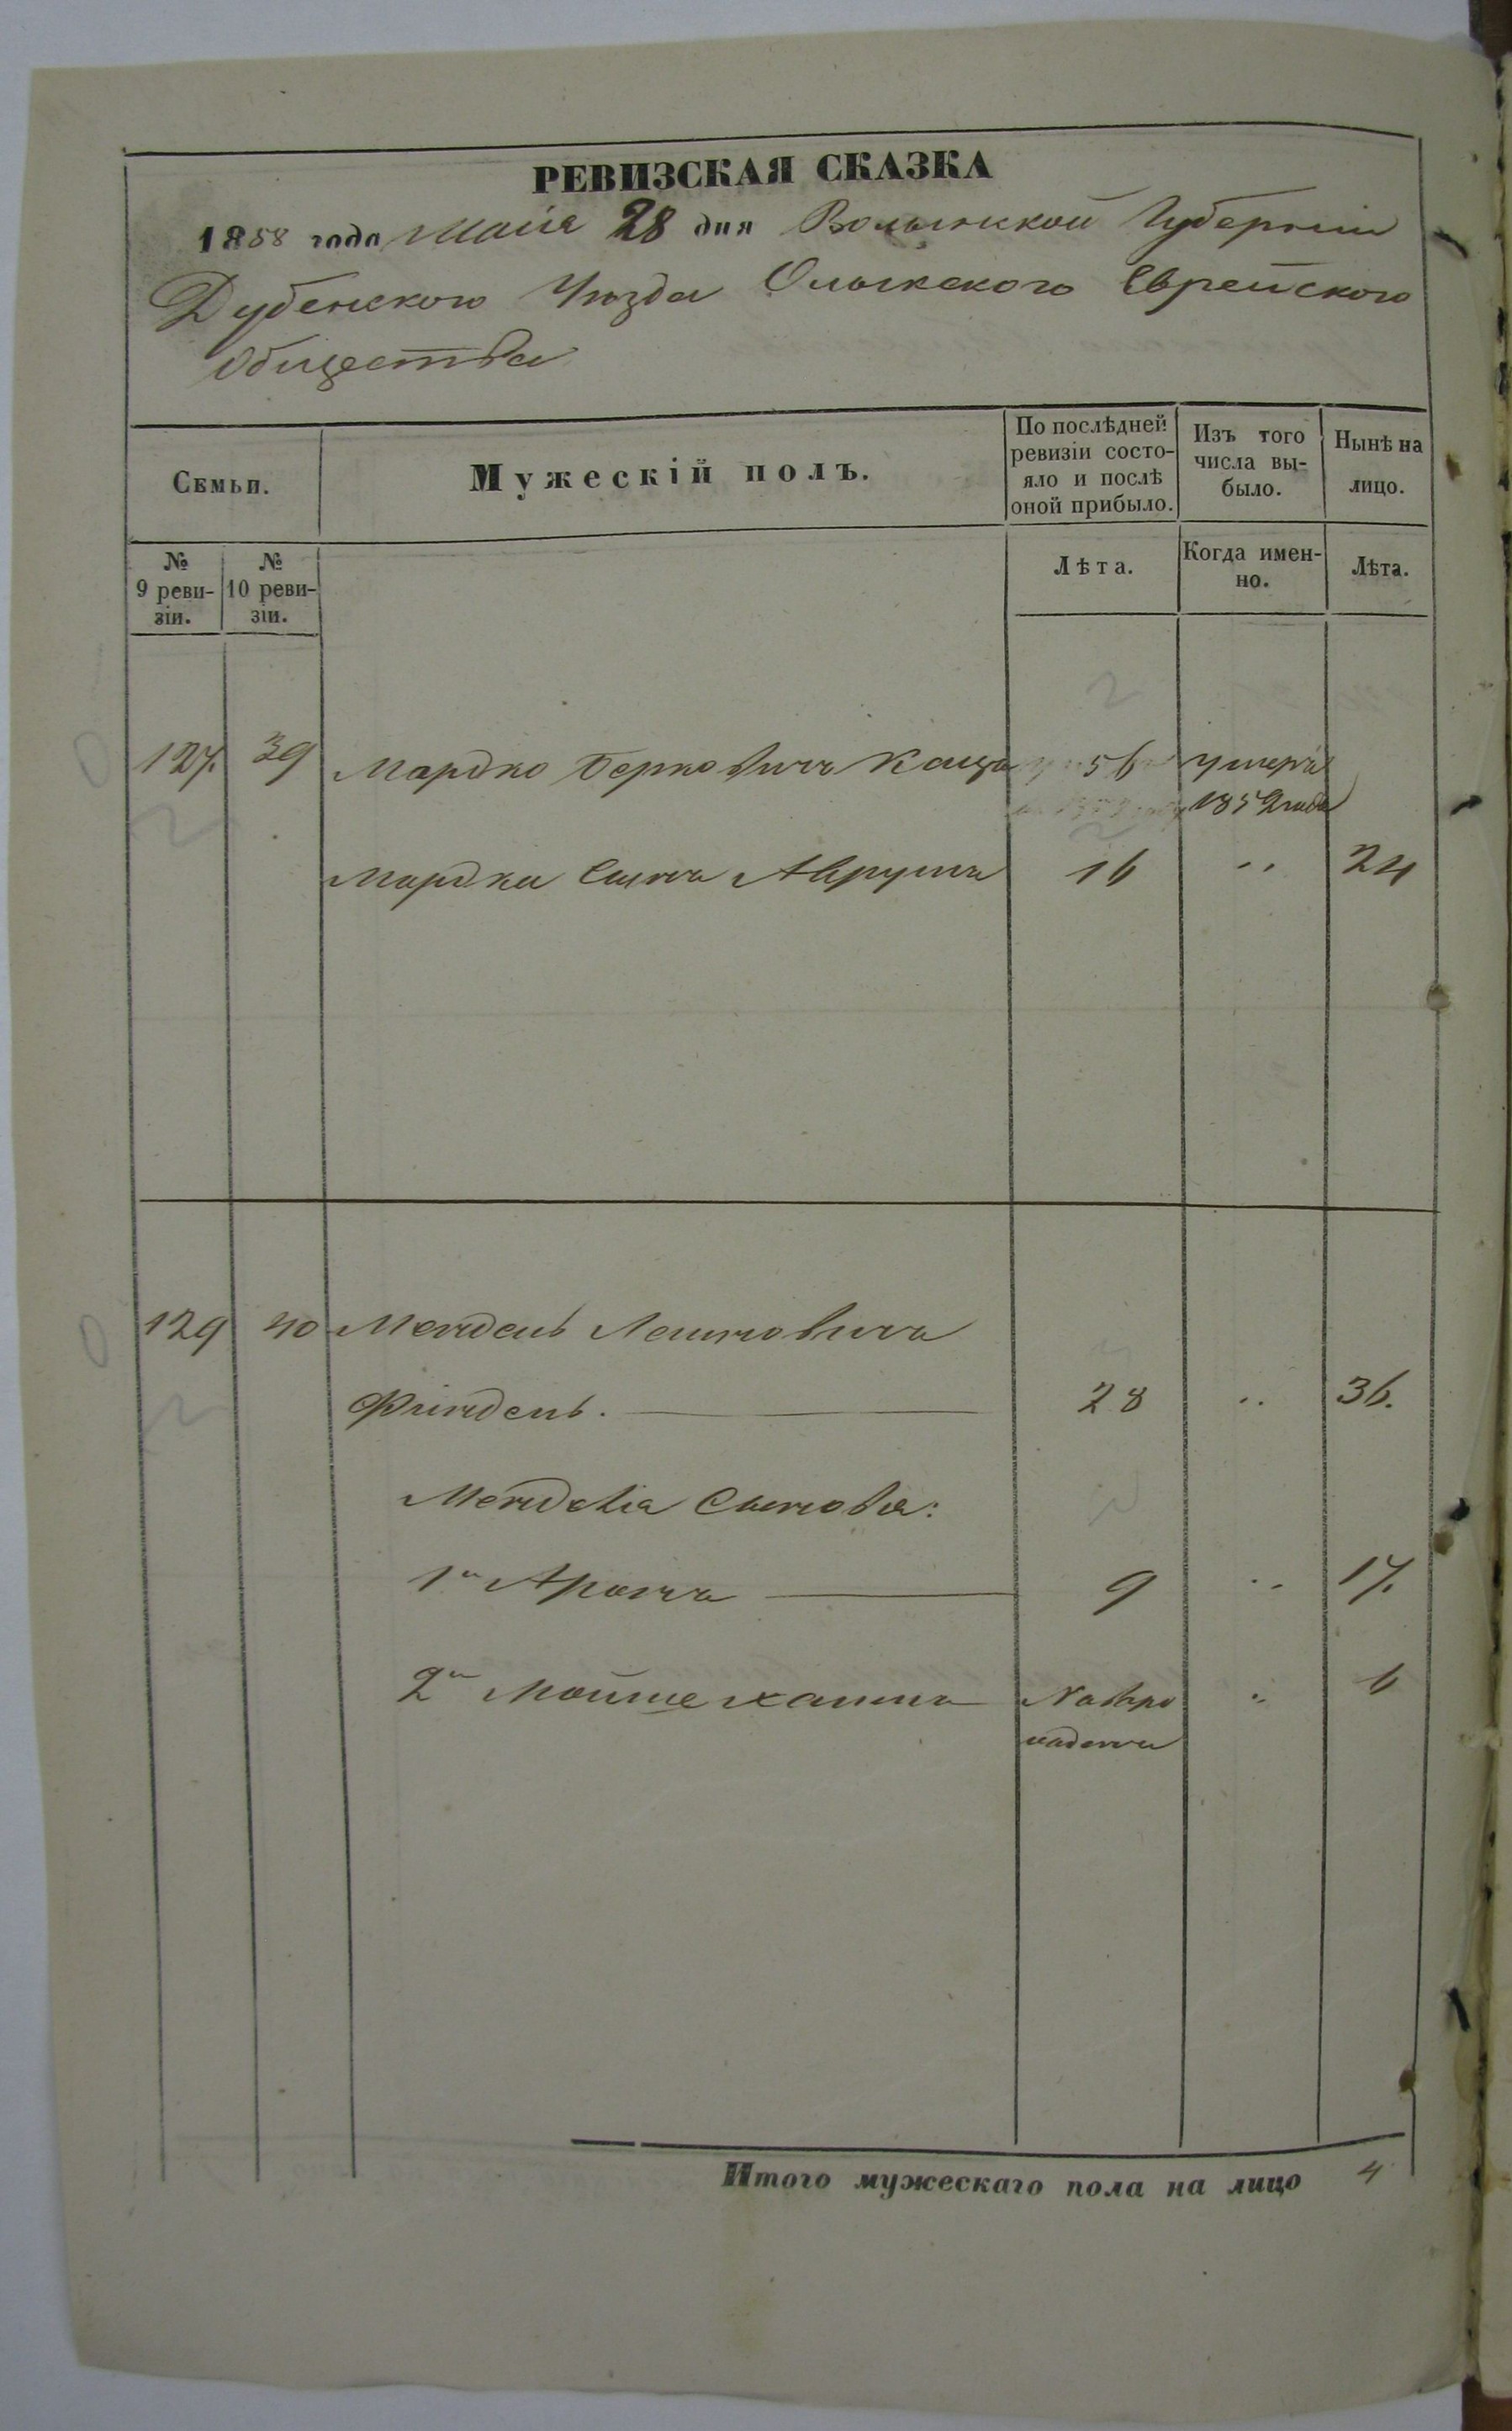 РЕВИЗСКАЯ СКАЗКА
1858 года Маія 28 дня Волынской Губерніи
Дубенского Уѣзда Олыкского Еврейского
Общества
Семьи.
Мужескій полъ.
По послѣдней ревизіи состо-
яло и послѣ
оной прибыло.
Изъ того
числа вы-
было.
Нынѣ на
лицо.
№
9 реви-
зіи.
№
10 реви-
зіи.
Лѣта.
Когда имен-
но.
Лѣта.
127. 39 Мордко Берковичъ Кацъ 56 умеръ
1852 года
Мордка Сынъ Аврумъ 16 " 24
129 40 Мендель
Финдель. 28 " 36.
Менделя Сыновья:
1й Аронъ 9 " 17.
2й Мойше хаимъ Новоро " 6
жденъ
Итого мужескаго пола на лицо 4